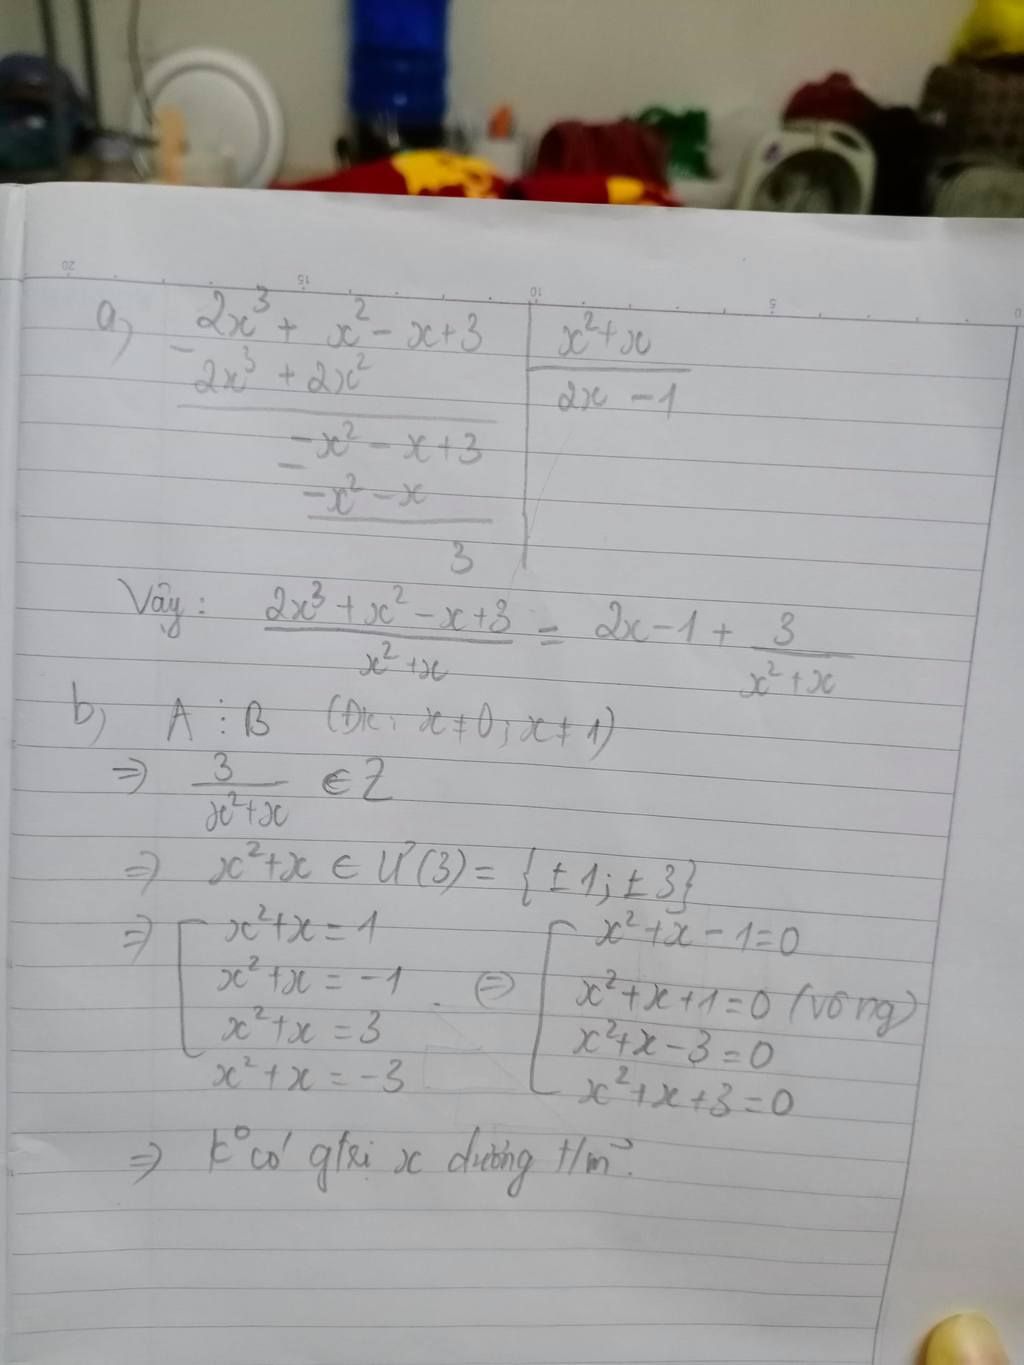 20 15 10 5 0
a, 2x³ + x² - x + 3 | x² + x
- 2x³ + 2x² | 2x - 1
-x² - x + 3
- -x² - x
3
Vậy: (2x³ + x² - x + 3)/(x² + x) = 2x - 1 + 3/(x² + x)
b, A ⋮ B (Đk: x ≠ 0; x ≠ 1)
=> 3/(x² + x) ∈ Z
=> x² + x ∈ Ư(3) = {±1; ±3}
=> [ x² + x = 1 <=> [ x² + x - 1 = 0
x² + x = -1 x² + x + 1 = 0 (vô ng)
x² + x = 3 x² + x - 3 = 0
x² + x = -3 x² + x + 3 = 0
=> k° có gtrị x dương t/m